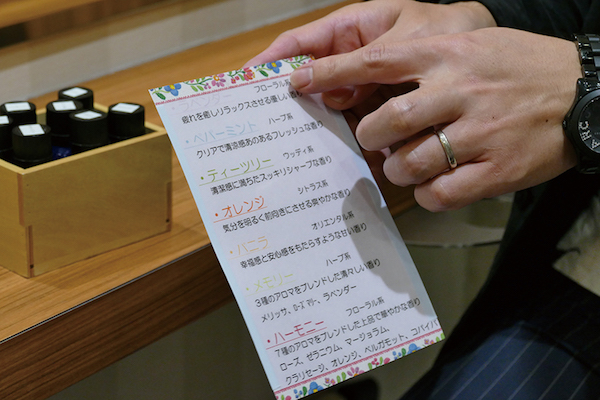 フローラル系
疲れを癒しリラックスさせる優しい香り
・ペパーミント ハーブ系
クリアで清涼感あのあるフレッシュな香り
・ティーツリー ウッディ系
清潔感に満ちたスッキリシャープな香り
・オレンジ シトラス系
気分を明るく前向きにさせる爽やかな香り
・バニラ オリエンタル系
幸福感と安心感をもたらすような甘い香り
・メモリー ハーブ系
3種のアロマをブレンドした清々しい香り
メリッサ、ローズマリー、ラベンダー
・ハーモニー フローラル系
7種のアロマをブレンドした上品で華やかな香り
ローズ、ゼラニウム、マージョラム、
クラリセージ、オレンジ、ベルガモット、コパイバ